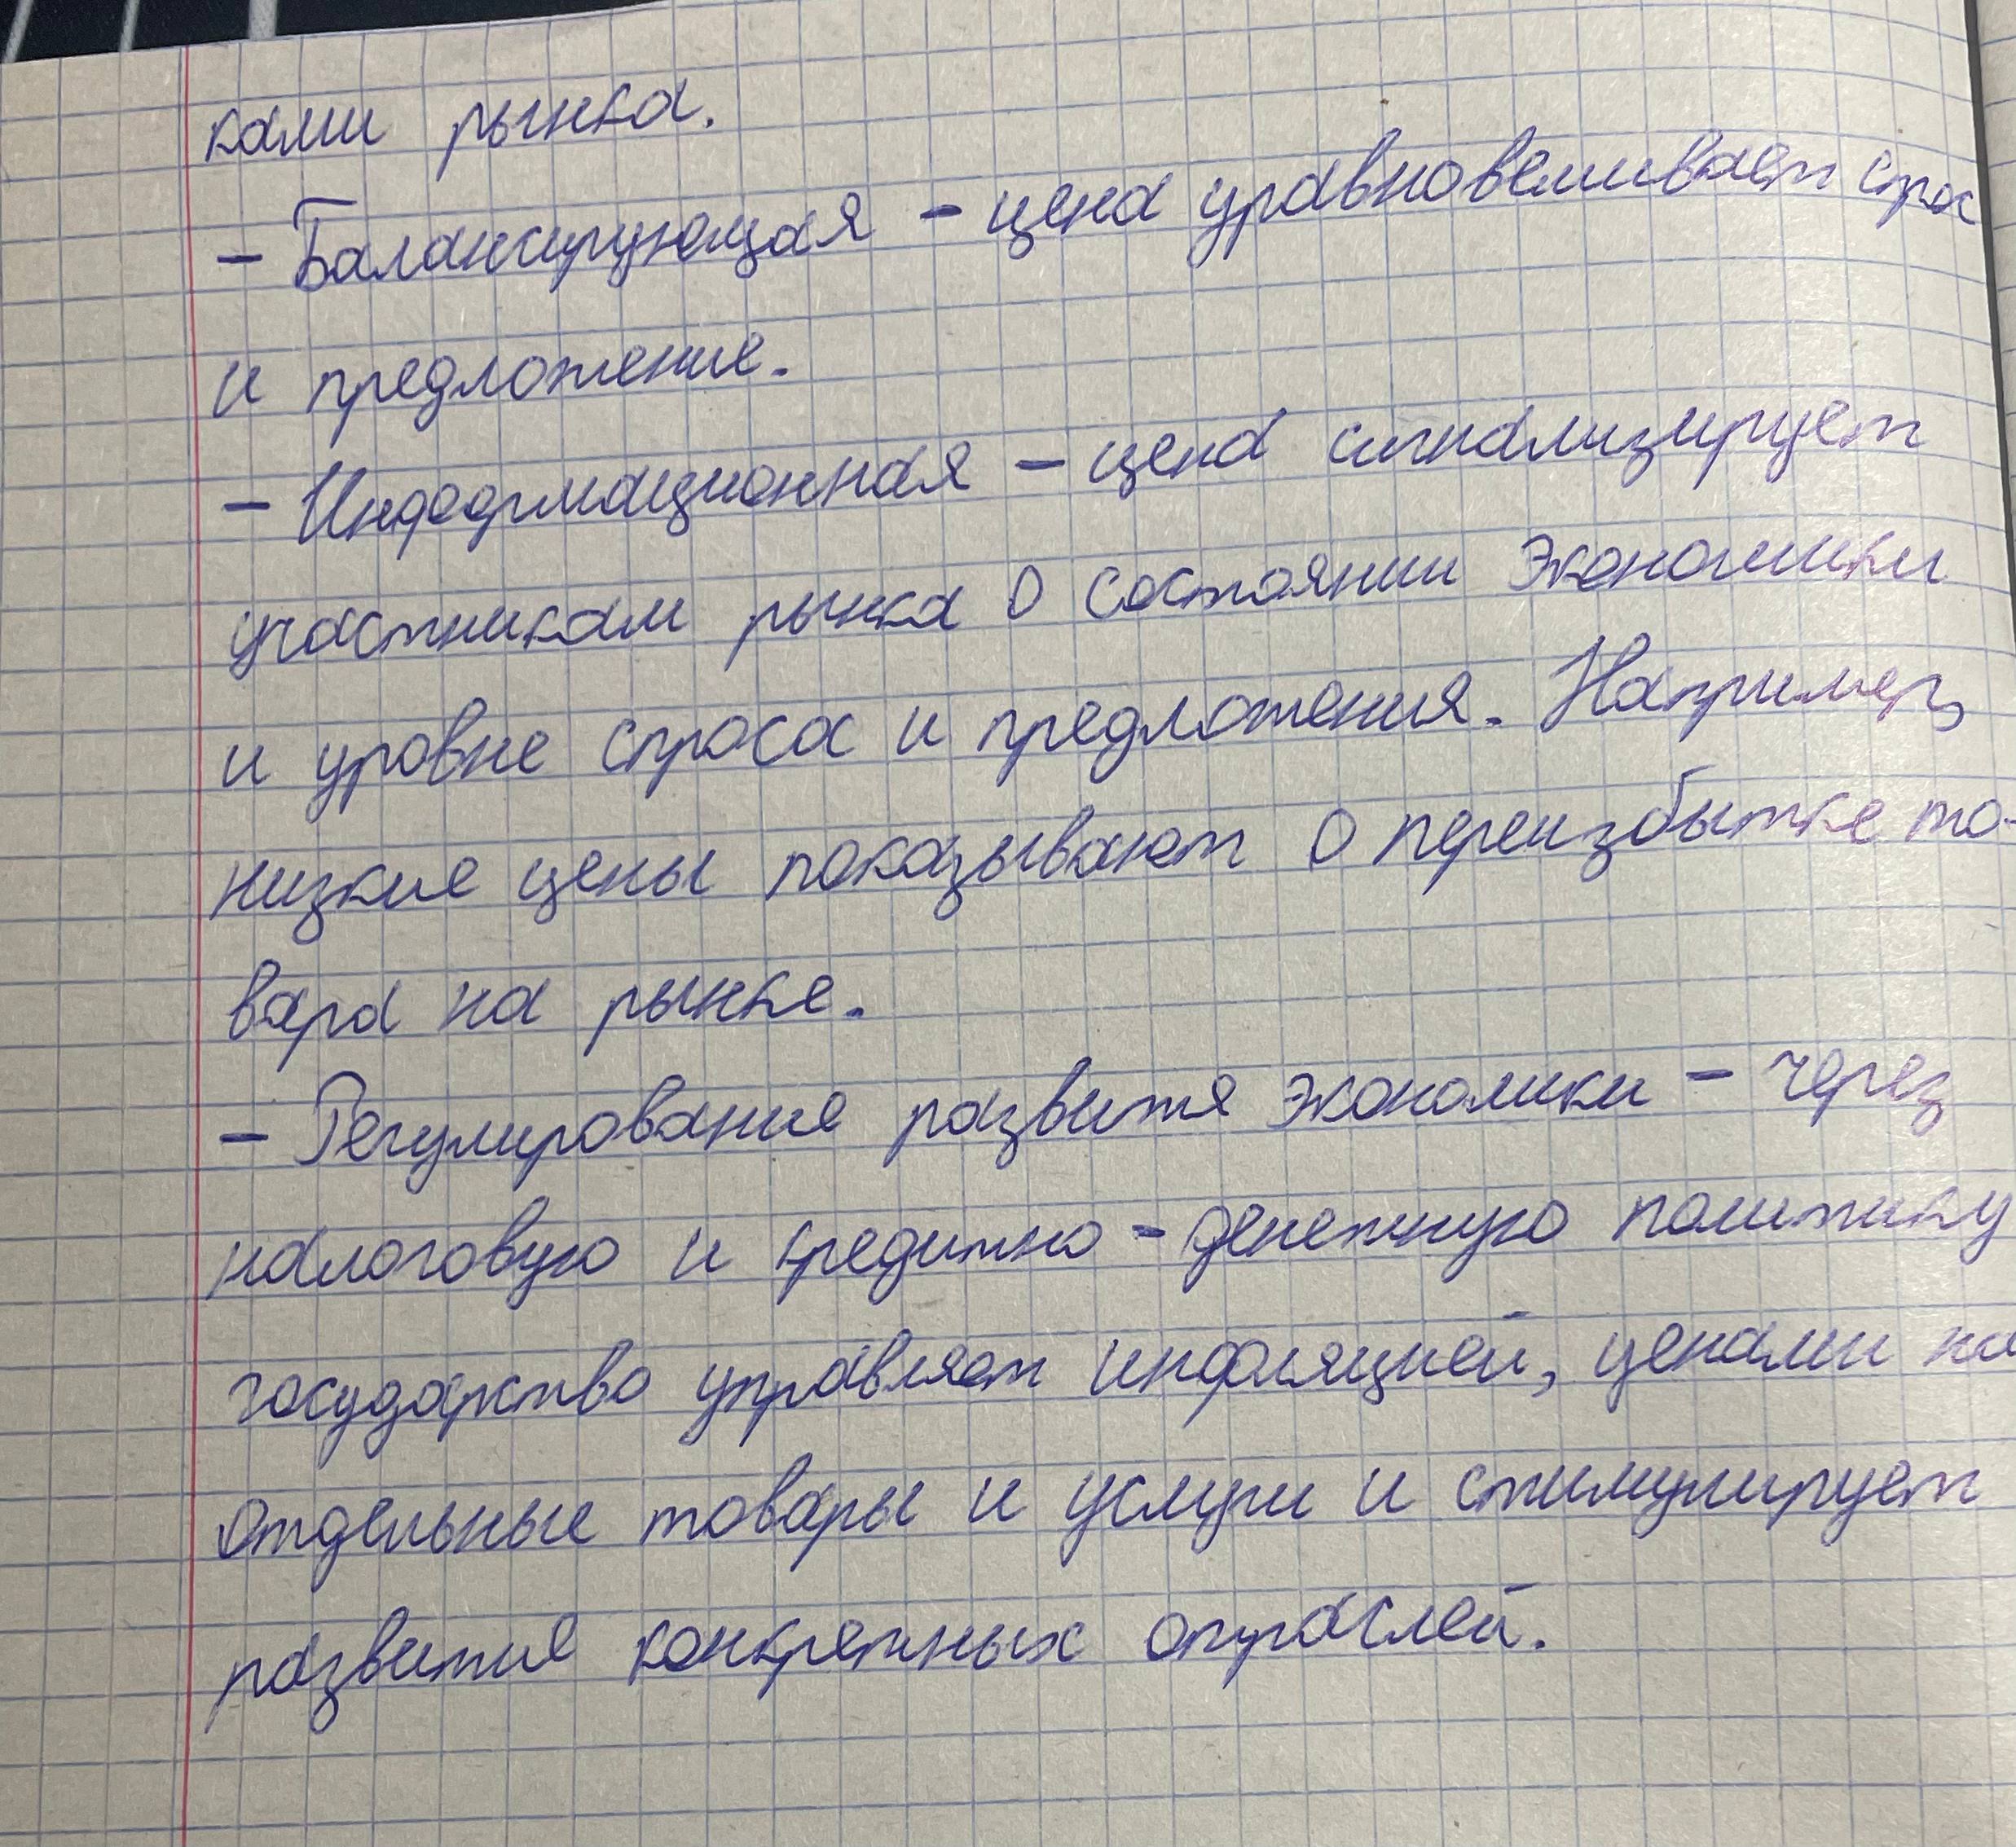 ками рынка.
- Балансирующая - цена уравновешивает спрос
и предложение.
- Информационная - цена сигнализирует
участникам рынка о состоянии экономики
и уровне спроса и предложения. Например,
низкие цены показывают о переизбытке то-
вара на рынке.
- Регулирование развитя экономики - через
налоговую и кредитно-денежную политику
государство управляет инфляцией, ценами на
отдельные товары и услуги и стимулирует
развития конкретных отраслей.